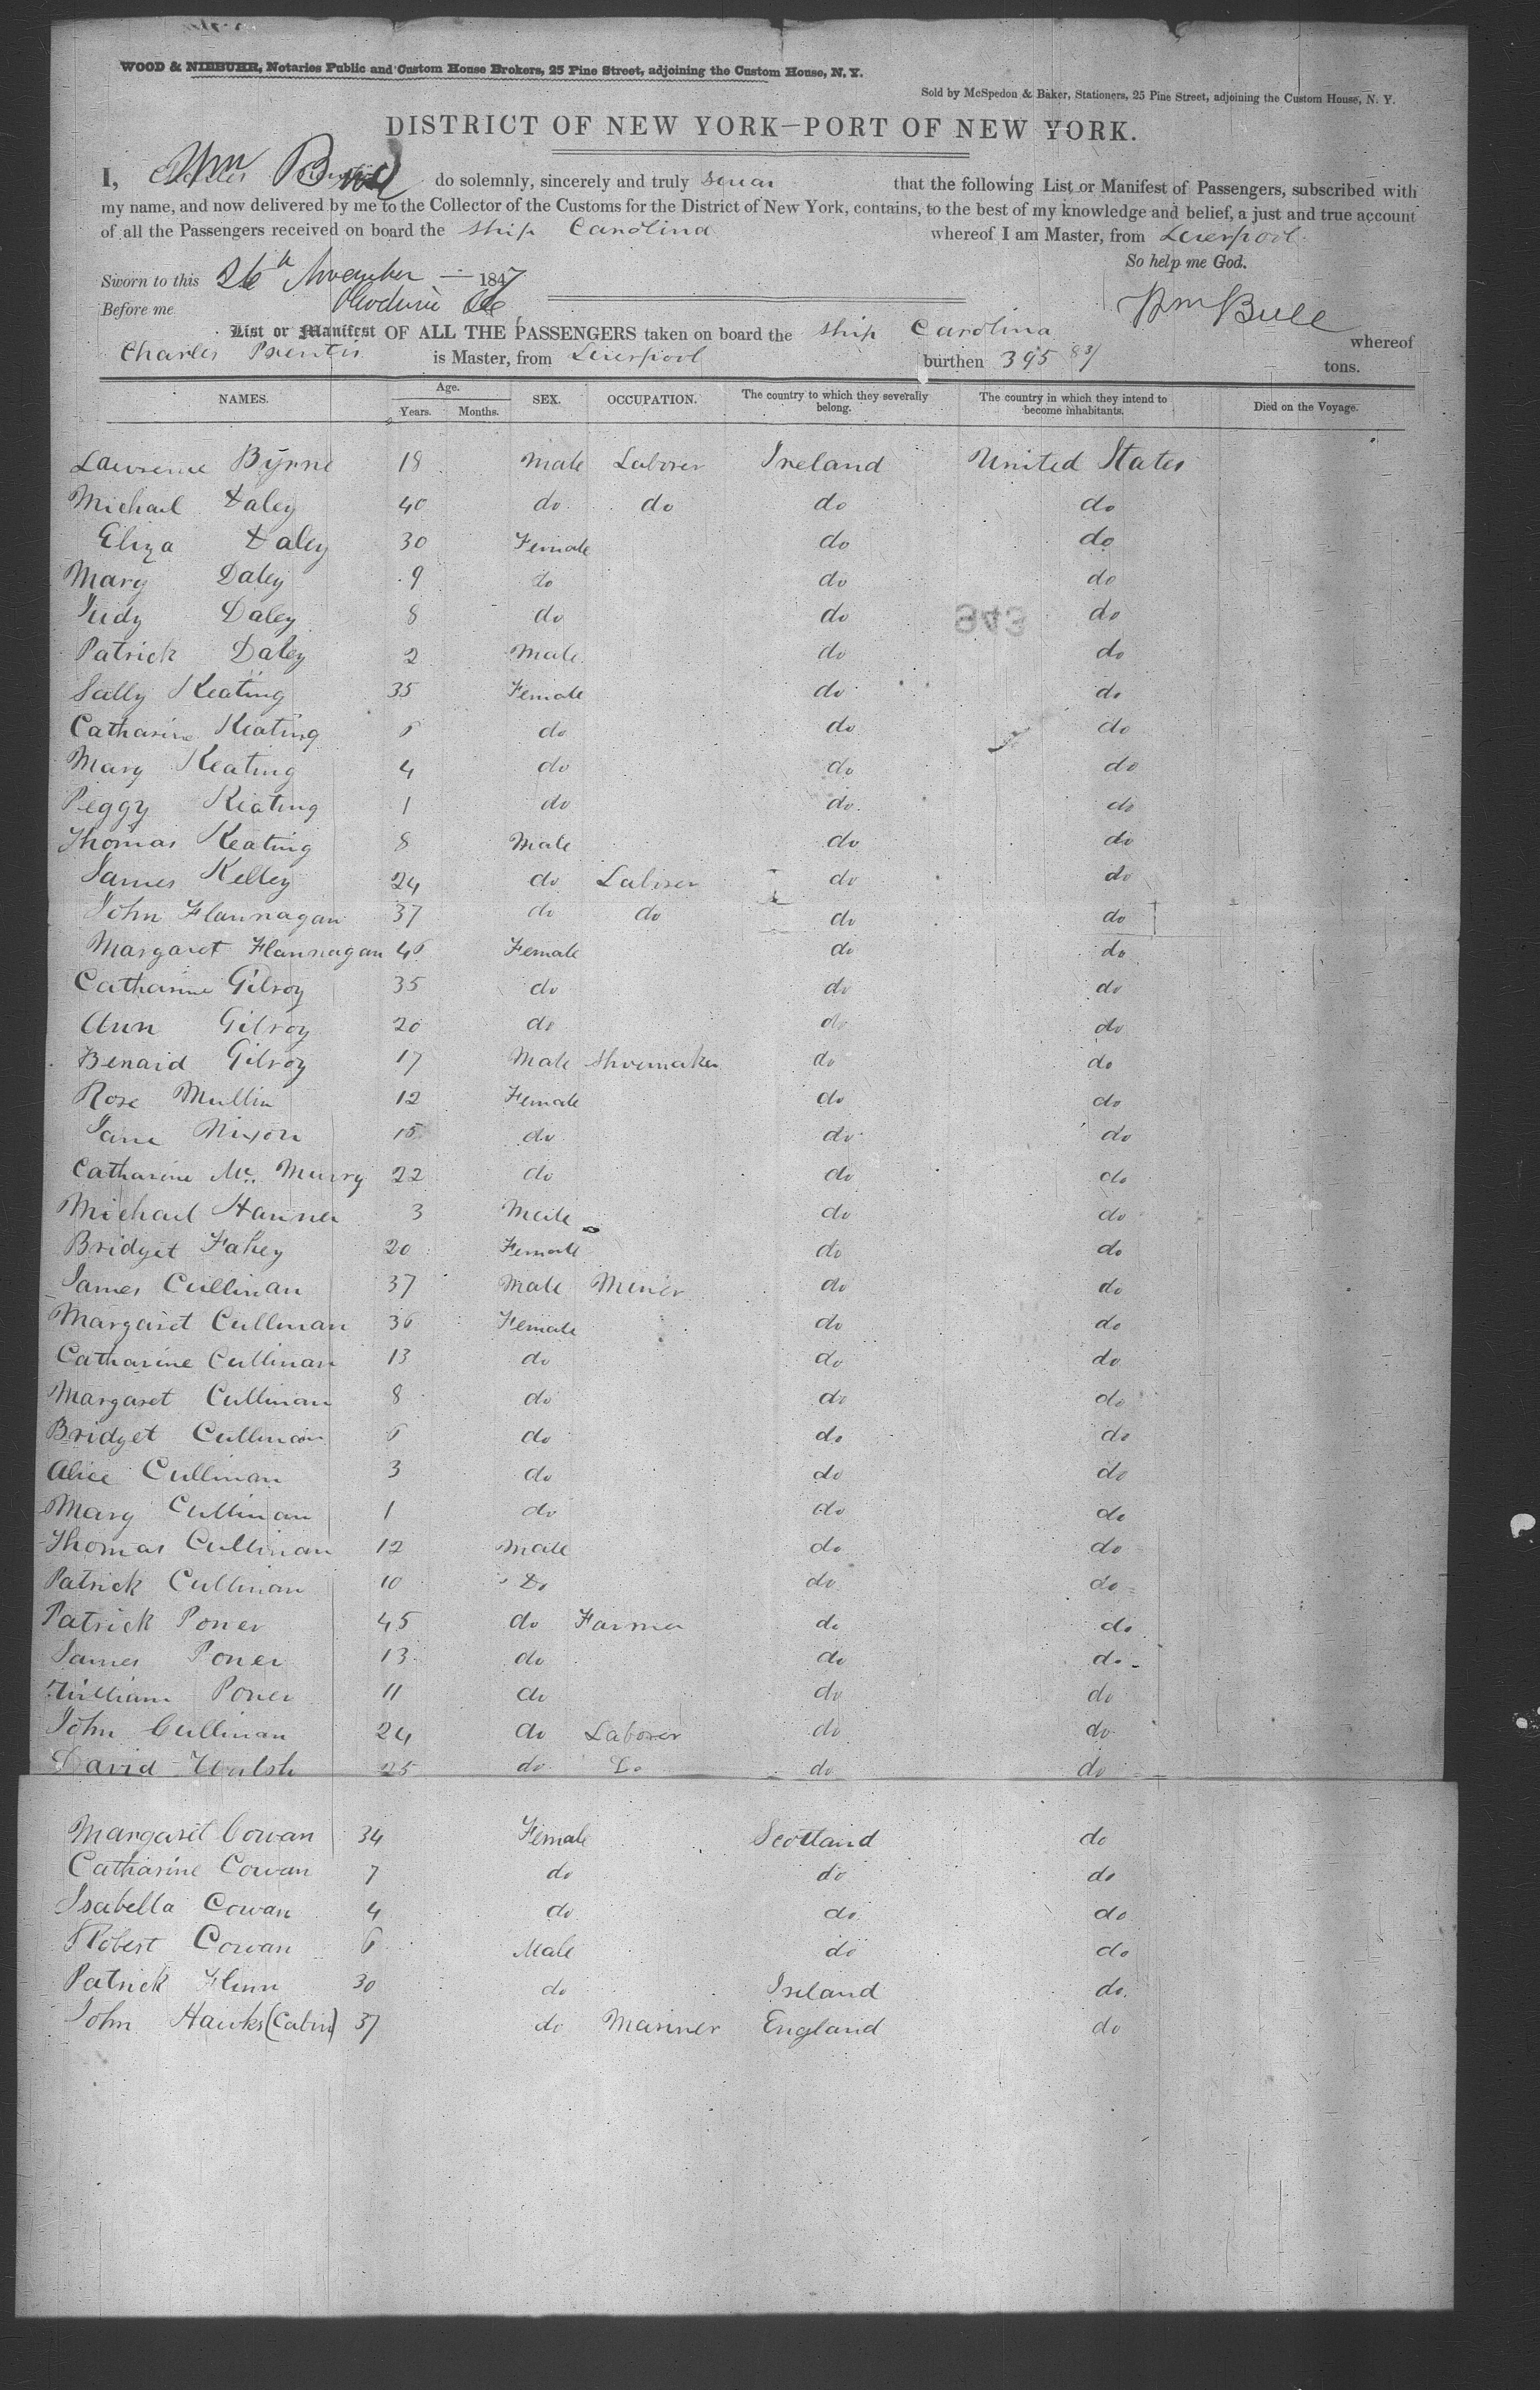 WOOD & NIEBUHR, Notaries Public and Custom House Brokers, 25 Pine Street, adjoining the Custom House, N. Y.
Sold by McSpedon & Baker, Stationers, 25 Pine Street, adjoining the Custom House, N. Y.
DISTRICT OF NEW YORK—PORT OF NEW YORK.
I, Wm Bull do solemnly, sincerely and truly swear that the following List or Manifest of Passengers, subscribed with
my name, and now delivered by me to the Collector of the Customs for the District of New York, contains, to the best of my knowledge and belief, a just and true account
of all the Passengers received on board the ship Carolina whereof I am Master, from Liverpool
So help me God.
Sworn to this 26th November 1847
Before me
Wm Bull
List or Manifest OF ALL THE PASSENGERS taken on board the ship Carolina whereof
Charles Prentis is Master, from Liverpool burthen 395 83/ tons.
NAMES. Age. Years. Months. SEX. OCCUPATION. The country to which they severally belong. The country in which they intend to become inhabitants. Died on the Voyage.
Lawrence Byrne 18 Male Laborer Ireland United States
Michael Daley 40 do do do do
Eliza Daley 30 Female do do
Mary Daley 9 do do do
Judy Daley 8 do do do
343
Patrick Daley 2 Male do do
Sally Keating 35 Female do do
Catharine Keating 6 do do do
Mary Keating 4 do do do
Peggy Keating 1 do do do
Thomas Keating 8 Male do do
James Kelley 24 do Laborer do do
John Flannagan 37 do do do do
Margaret Flannagan 46 Female do do
Catharine Gilroy 35 do do do
Ann Gilroy 20 do do do
Benard Gilroy 17 Male Shoemaker do do
Rose Mullin 12 Female do do
Jane Nixon 15 do do do
Catharine Mc Murry 22 do do do
Michael Hanner 3 Male do do
Bridget Fahey 20 Female do do
James Cullinan 37 Male Miner do do
Margaret Cullinan 36 Female do do
Catharine Cullinan 13 do do do
Margaret Cullinan 8 do do do
Bridget Cullinan 6 do do do
Alice Cullinan 3 do do do
Mary Cullinan 1 do do do
Thomas Cullinan 12 Male do do
Patrick Cullinan 10 Do do do
Patrick Poner 45 do Farmer do do
James Poner 13 do do do
William Poner 11 do do do
John Cullinan 24 do Laborer do do
David Walsh 25 do Do do do
Margaret Cowan 34 Female Scotland do
Catharine Cowan 7 do do do
Isabella Cowan 4 do do do
Robert Cowan 6 Male do do
Patrick Flinn 30 do Ireland do
John Hawks (Cabin) 37 do Mariner England do